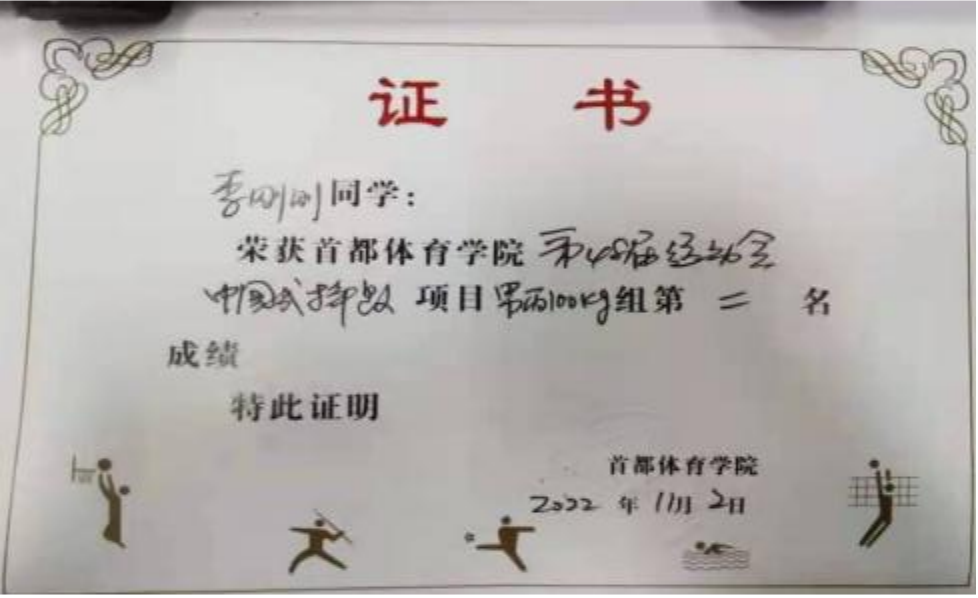 证 书
李刚刚同学：
荣获首都体育学院 第48届运动会
中国式摔跤 项目 男丙100kg组第 二 名
成绩
特此证明
首都体育学院
2022 年 11月 2日